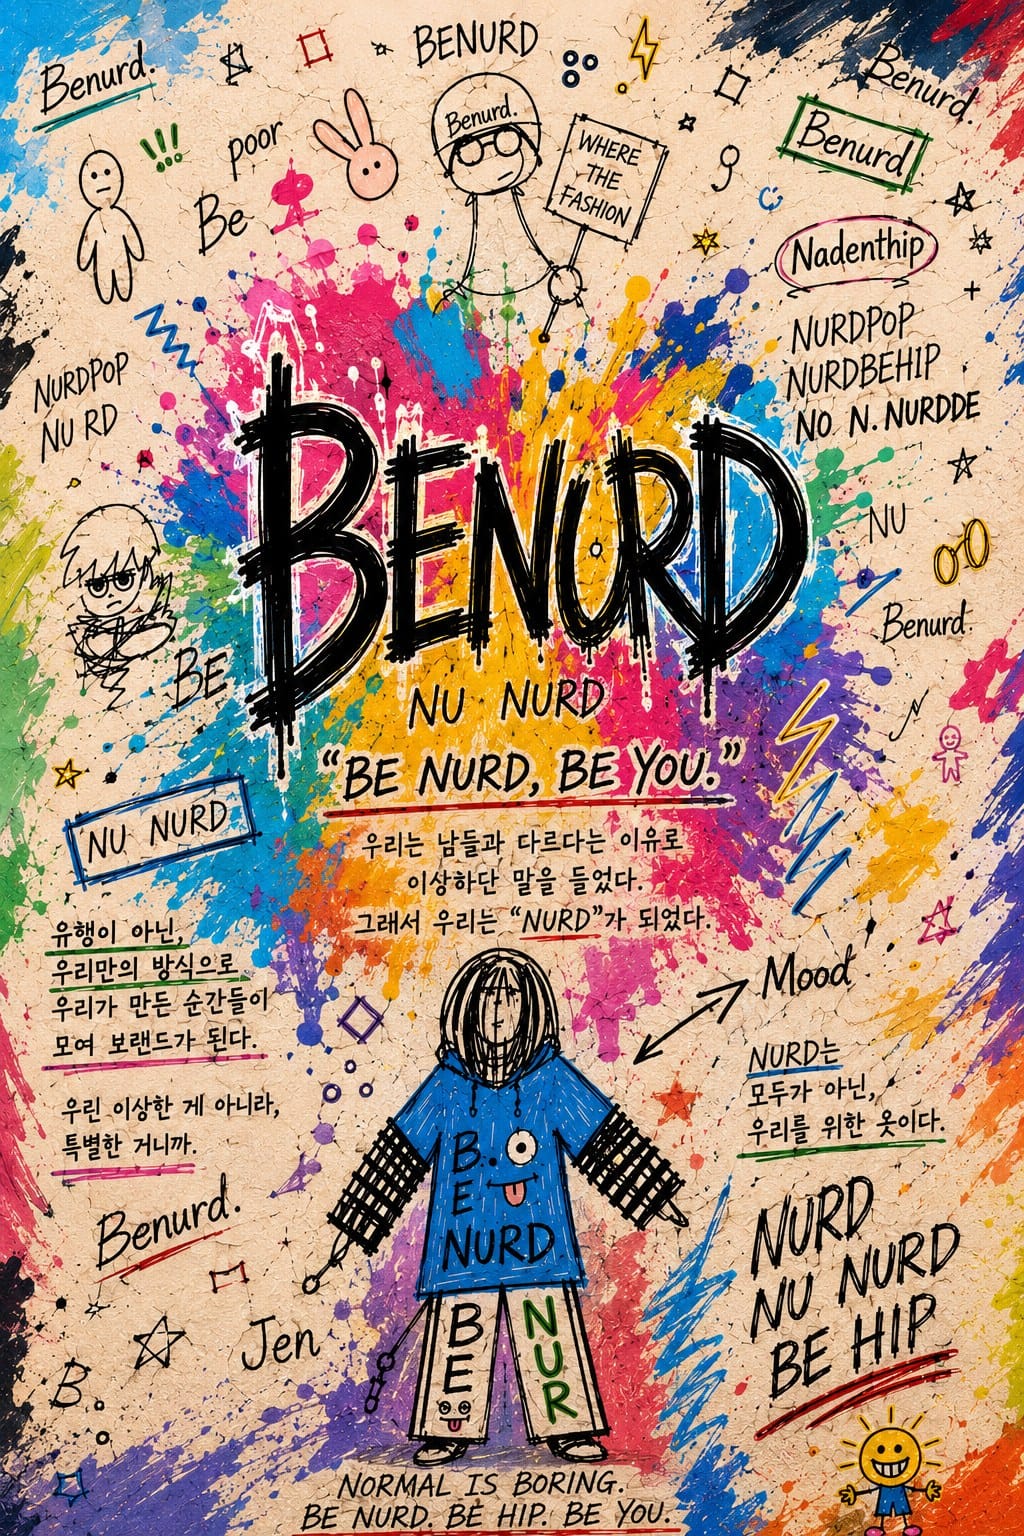 BENURD
Benurd.
poor
Be
Benurd.
WHERE
THE
FASHION
Benurd.
Benurd
Nadenthip
NURDPOP
NURDBEHIP
NO N. NURDDE
NURDPOP
NU RD
BENURD
NU
Benurd.
BE
NU NURD
"BE NURD, BE YOU."
NU NURD
우리는 남들과 다르다는 이유로
이상하단 말을 들었다.
그래서 우리는 "NURD"가 되었다.
유행이 아닌,
우리만의 방식으로
우리가 만든 순간들이
모여 보랜드가 된다.
우린 이상한 게 아니라,
특별한 거니까.
Mood
NURD는
모두가 아닌,
우리를 위한 옷이다.
B..
E
NURD
Benurd.
Jen
B.
BE
NUR
NURD
NU NURD
BE HIP
NORMAL IS BORING.
BE NURD. BE HIP. BE YOU.